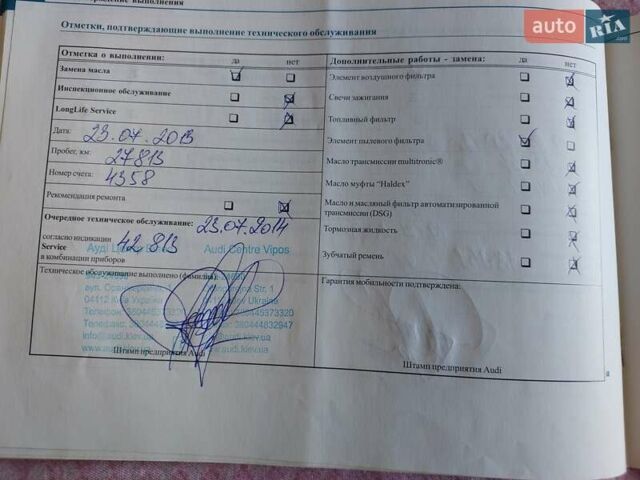 auto RIA
.com
Отметки, подтверждающие выполнение технического обслуживания
Отметка о выполнении: да нет
Замена масла
Инспекционное обслуживание
LongLife Service
Дата: 23.07.2013
Пробег, км: 27813
Номер счета: 4358
Рекомендация ремонта
Очередное техническое обслуживание: 23.07.2014
согласно индикации 42 813
Service
в комбинации приборов
Audi Centre Vipos
Техническое обслуживание выполнено (фамилия)
Str. 1
04112
Ukraine
Телефон:
Телефакс: 380444832947
info@audi.kiev.ua
.audi.kiev.ua
Штамп предприятия Audi
Дополнительные работы - замена: да нет
Элемент воздушного фильтра
Свечи зажигания
Топливный фильтр
Элемент пылевого фильтра
Масло трансмиссии multitronic®
Масло муфты “Haldex”
Масло и масляный фильтр автоматизированной
трансмиссии (DSG)
Тормозная жидкость
Зубчатый ремень
Гарантия мобильности подтверждена:
Штамп предприятия Audi